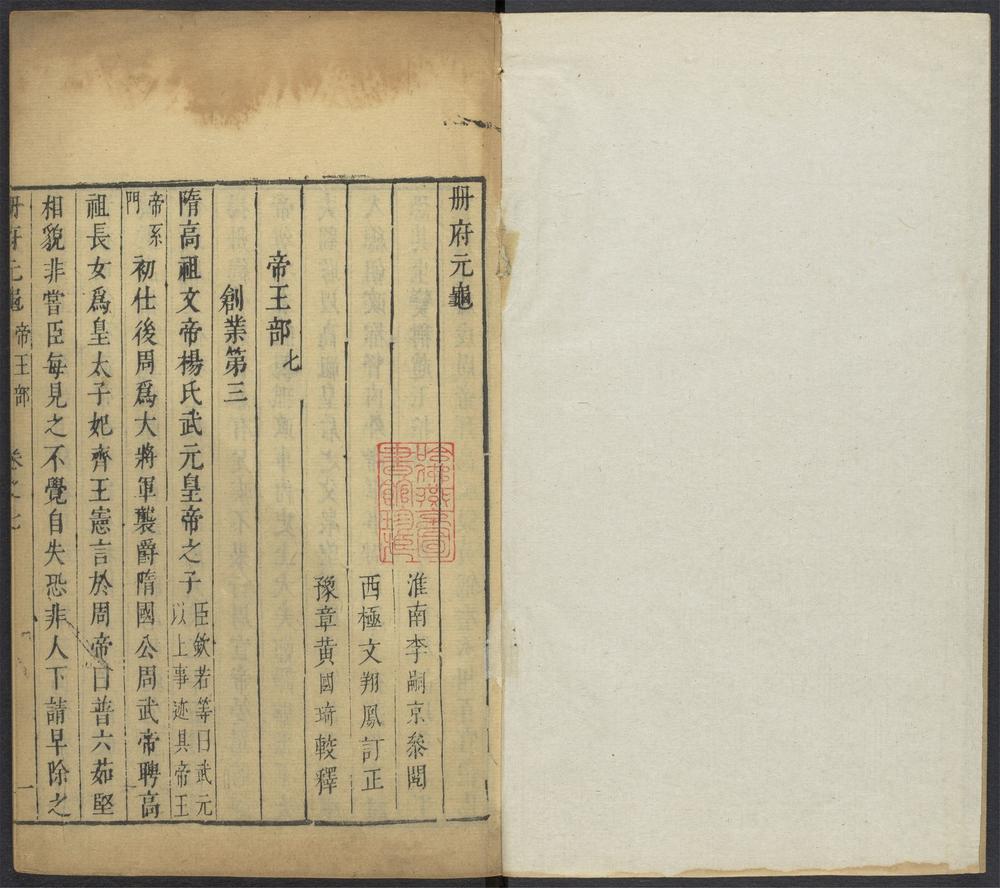 册府元龜
淮南李嗣京叅閱
西極文翔鳳訂正
豫章黃國琦較釋
帝王部 七
創業第三
隋高祖文帝楊氏武元皇帝之子臣欽若等曰武元以上事迹具帝王
帝系門初仕後周爲大將軍襲爵隋國公周武帝聘高
祖長女爲皇太子妃齊王憲言於周帝曰普六茹堅
相貌非嘗臣每見之不覺自失恐非人下請早除之
册府元龜 帝王部 卷之七 一
哈佛燕京圖書館珍藏